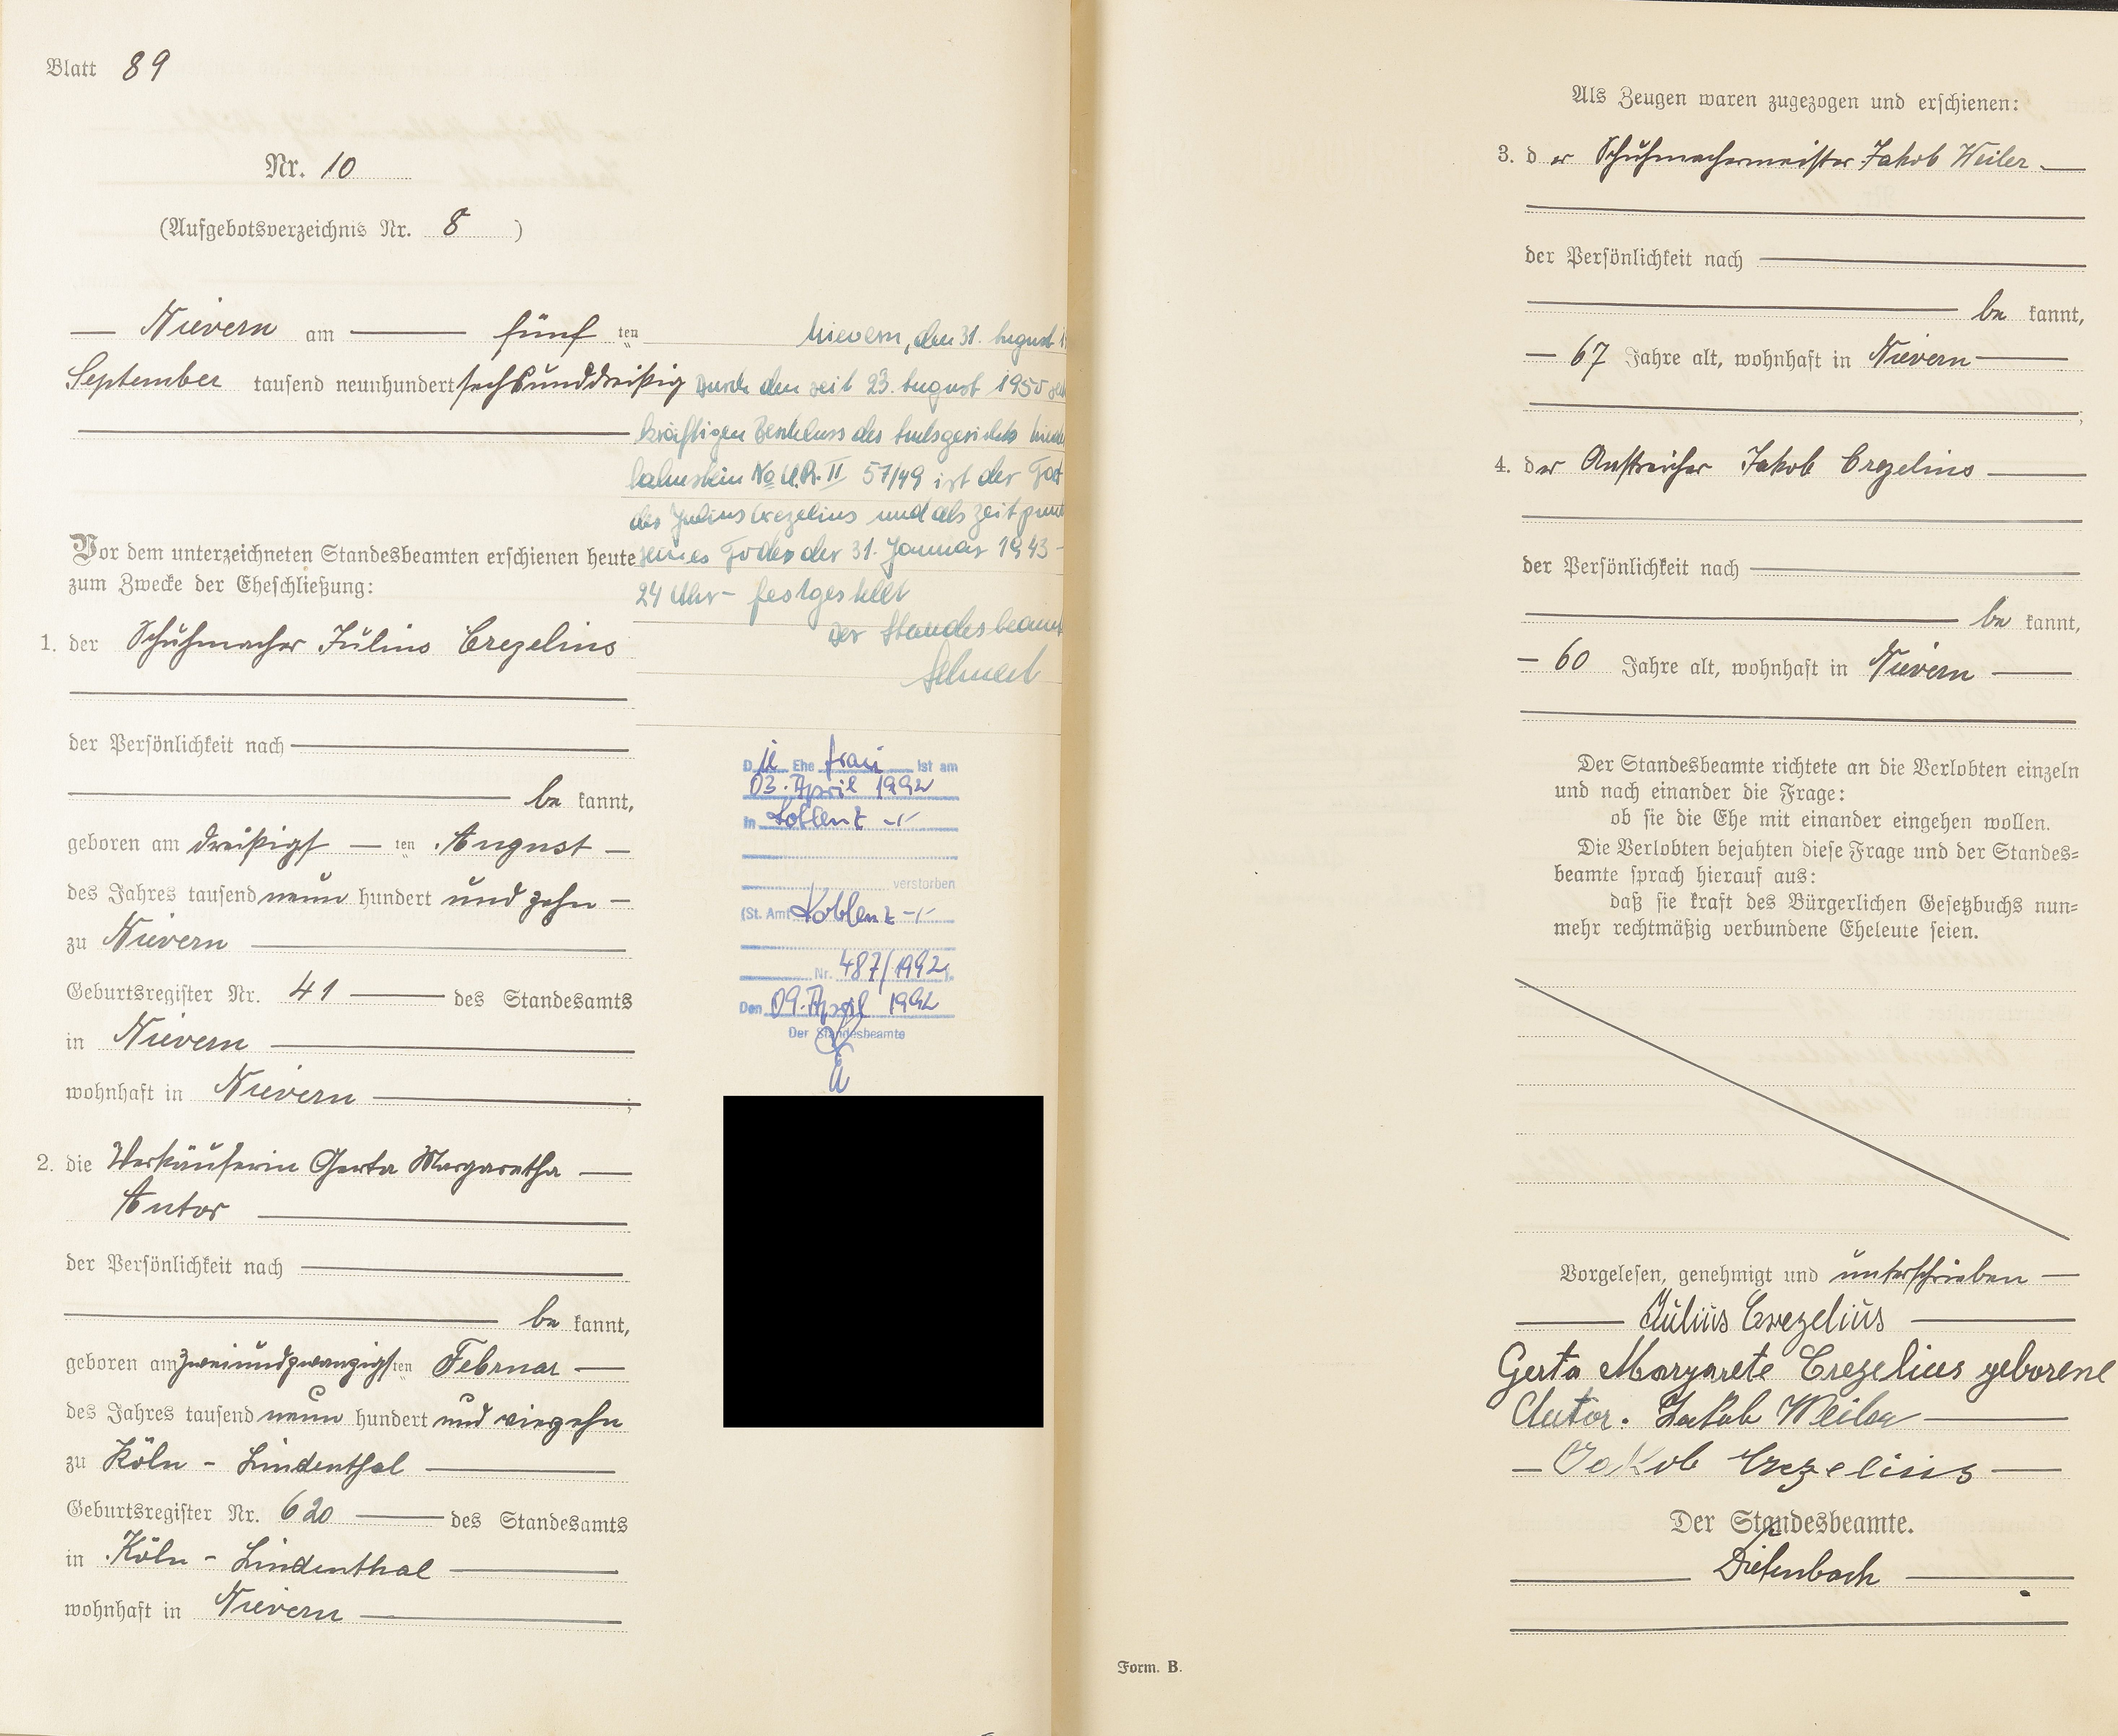 Blatt 89
Nr. 10
(Aufgebotsverzeichnis Nr. 8 )
Nievern am fünf ten
September tausend neunhundert sechsunddreißig
Nievern, den 31. August
Durch den seit 23. August 1950
kräftigen Beschluss des Amtsgerichts
lahnstein No U.R. II 57/49 ist der Tod
des Julius Crezelius und als Zeitpunkt
seines Todes der 31. Januar 1943 -
24 Uhr - festgestellt
Der Standesbeamte
Vor dem unterzeichneten Standesbeamten erschienen heute
zum Zwecke der Eheschließung:
1. der Schuhmacher Julius Crezelius
der Persönlichkeit nach
be kannt,
geboren am dreißigst ten August
des Jahres tausend neun hundert und zehn
zu Nievern
Geburtsregister Nr. 41 des Standesamts
in Nievern
wohnhaft in Nievern ;
2. die Verkäuferin Gerta Margaretha
Antor
der Persönlichkeit nach
be kannt,
geboren am zweiundzwanzigsten Februar
des Jahres tausend neun hundert und vierzehn
zu Köln - Lindenthal
Geburtsregister Nr. 620 des Standesamts
in Köln - Lindenthal
wohnhaft in Nievern
Die Ehe frau ist am
03. April 1992
in Koblenz -//-
verstorben
(St. Amt Koblenz -//-
Nr. 487/1992).
Den 09. April 1992
Der Standesbeamte
Als Zeugen waren zugezogen und erschienen:
3. d er Schuhmachermeister Jakob Weiler
der Persönlichkeit nach
be kannt,
67 Jahre alt, wohnhaft in Nievern
;
4. der Anstreicher Jakob Crezelius
der Persönlichkeit nach
be kannt,
60 Jahre alt, wohnhaft in Nievern
Der Standesbeamte richtete an die Verlobten einzeln
und nach einander die Frage:
ob sie die Ehe mit einander eingehen wollen.
Die Verlobten bejahten diese Frage und der Standes=
beamte sprach hierauf aus:
daß sie kraft des Bürgerlichen Gesetzbuchs nun=
mehr rechtmäßig verbundene Eheleute seien.
Vorgelesen, genehmigt und unterschrieben
Julius Crezelius
Gerta Margarete Crezelius geborene
Antor. Jakob Weiler
Jakob Crezelius
Der Standesbeamte.
Diefenbach
Form. B.